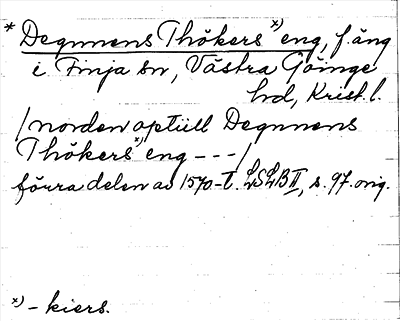 * Degnnens Thökers x) eng, f. äng
i Finja sn, Västra Göinge
hd, Krist. l.
/norden optill Degnnens
Thökers x) eng ---/
förra delen av 1570-t. LSLB II, s. 97. orig.
x) - kiers.